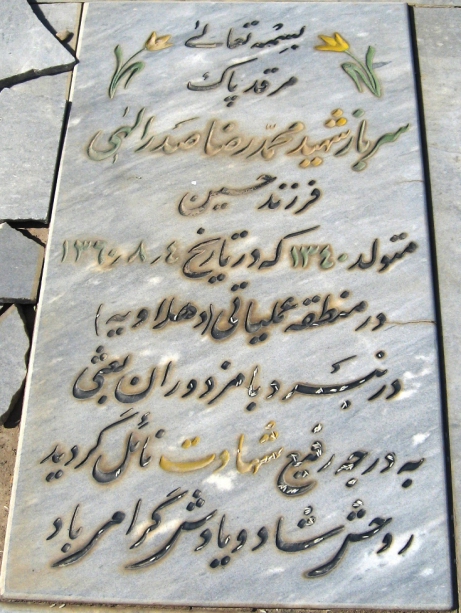 بسمه تعالی
مرقد پاک
سرباز شهید محمدرضا صدرالهی
فرزند حسین
متولد ۱۳۴۰ که در تاریخ ۱۳۶۰٫۸٫۴
در منطقه عملیاتی (دهلاویه)
در نبرد با مزدوران بعثی
به درجه رفیع شهادت نائل گردید
روحش شاد و یادش گرامی باد